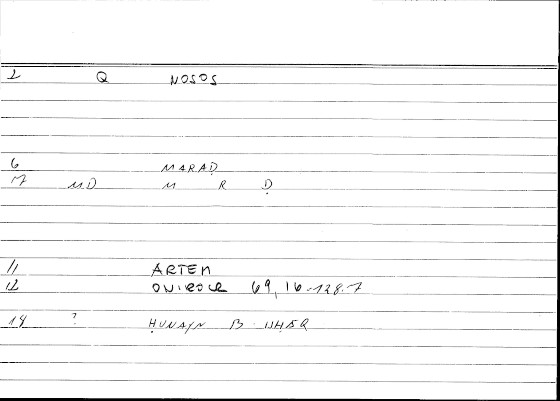 2 Q NOSOS
6 MARAḌ
17 MD M R Ḍ
11 ARTEM
12 ONIROCR 69, 16-128.7
14 ? ḤUNAYN B